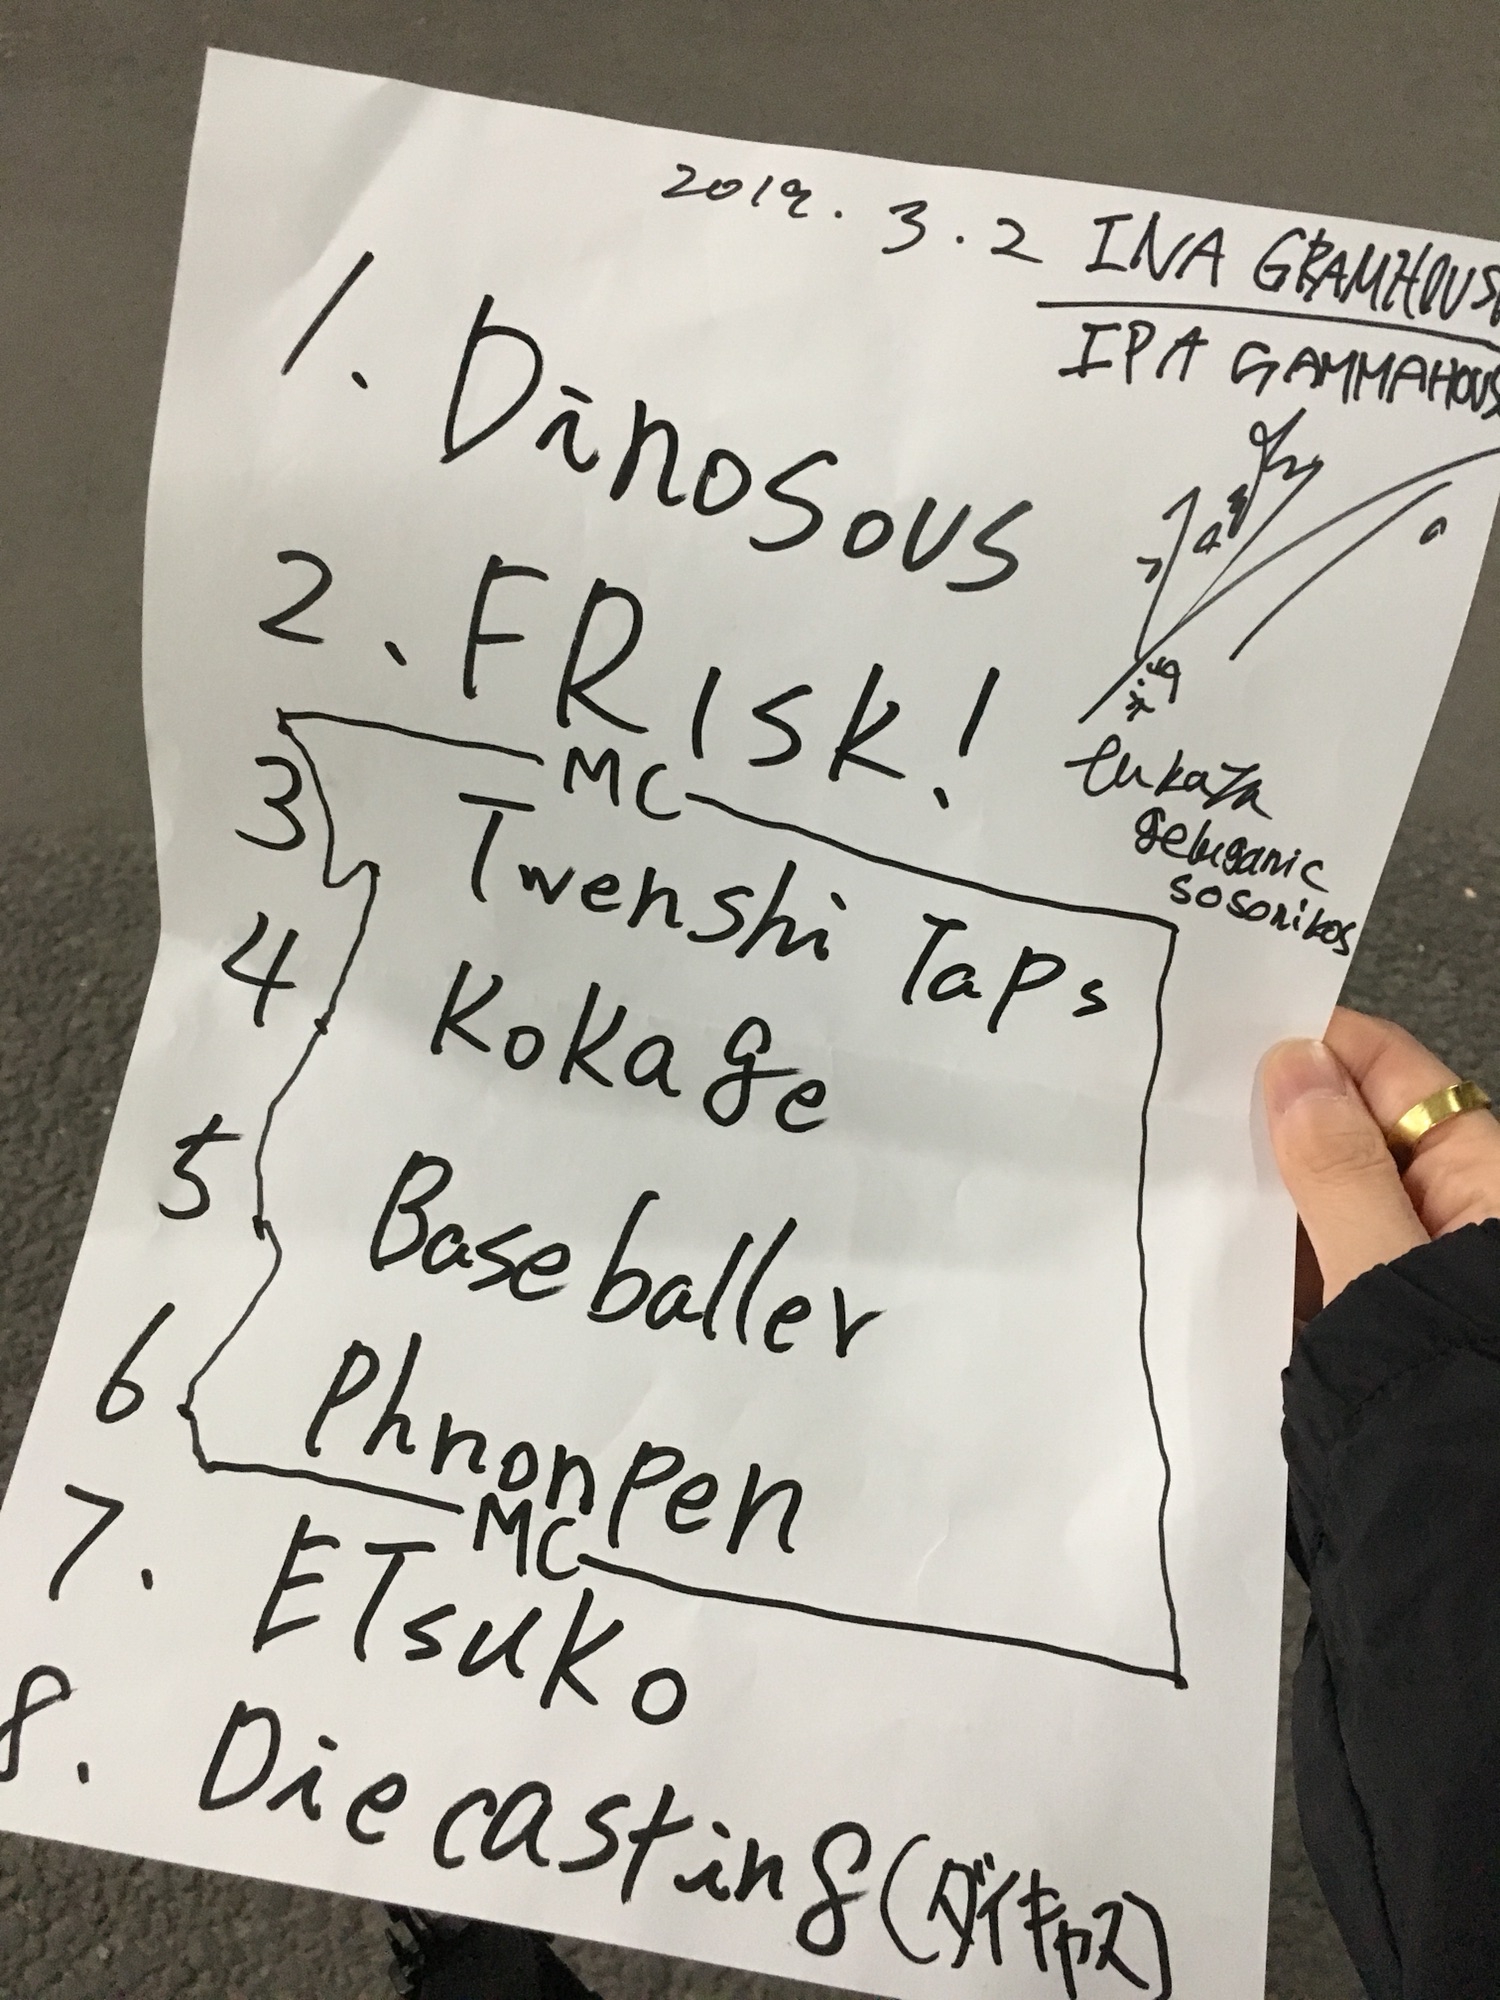 2019.3.2 INA GRAMHOUS
IPA GAMMAHOUS
1. Dinosous
2. FRisk!
MC
3 Twenshi Taps
4 Kokage
5 Baseballer
6 Phnonpen
MC
7. ETsuko
8. Diecasting(ダイキャス)
geluganic
sosonikos